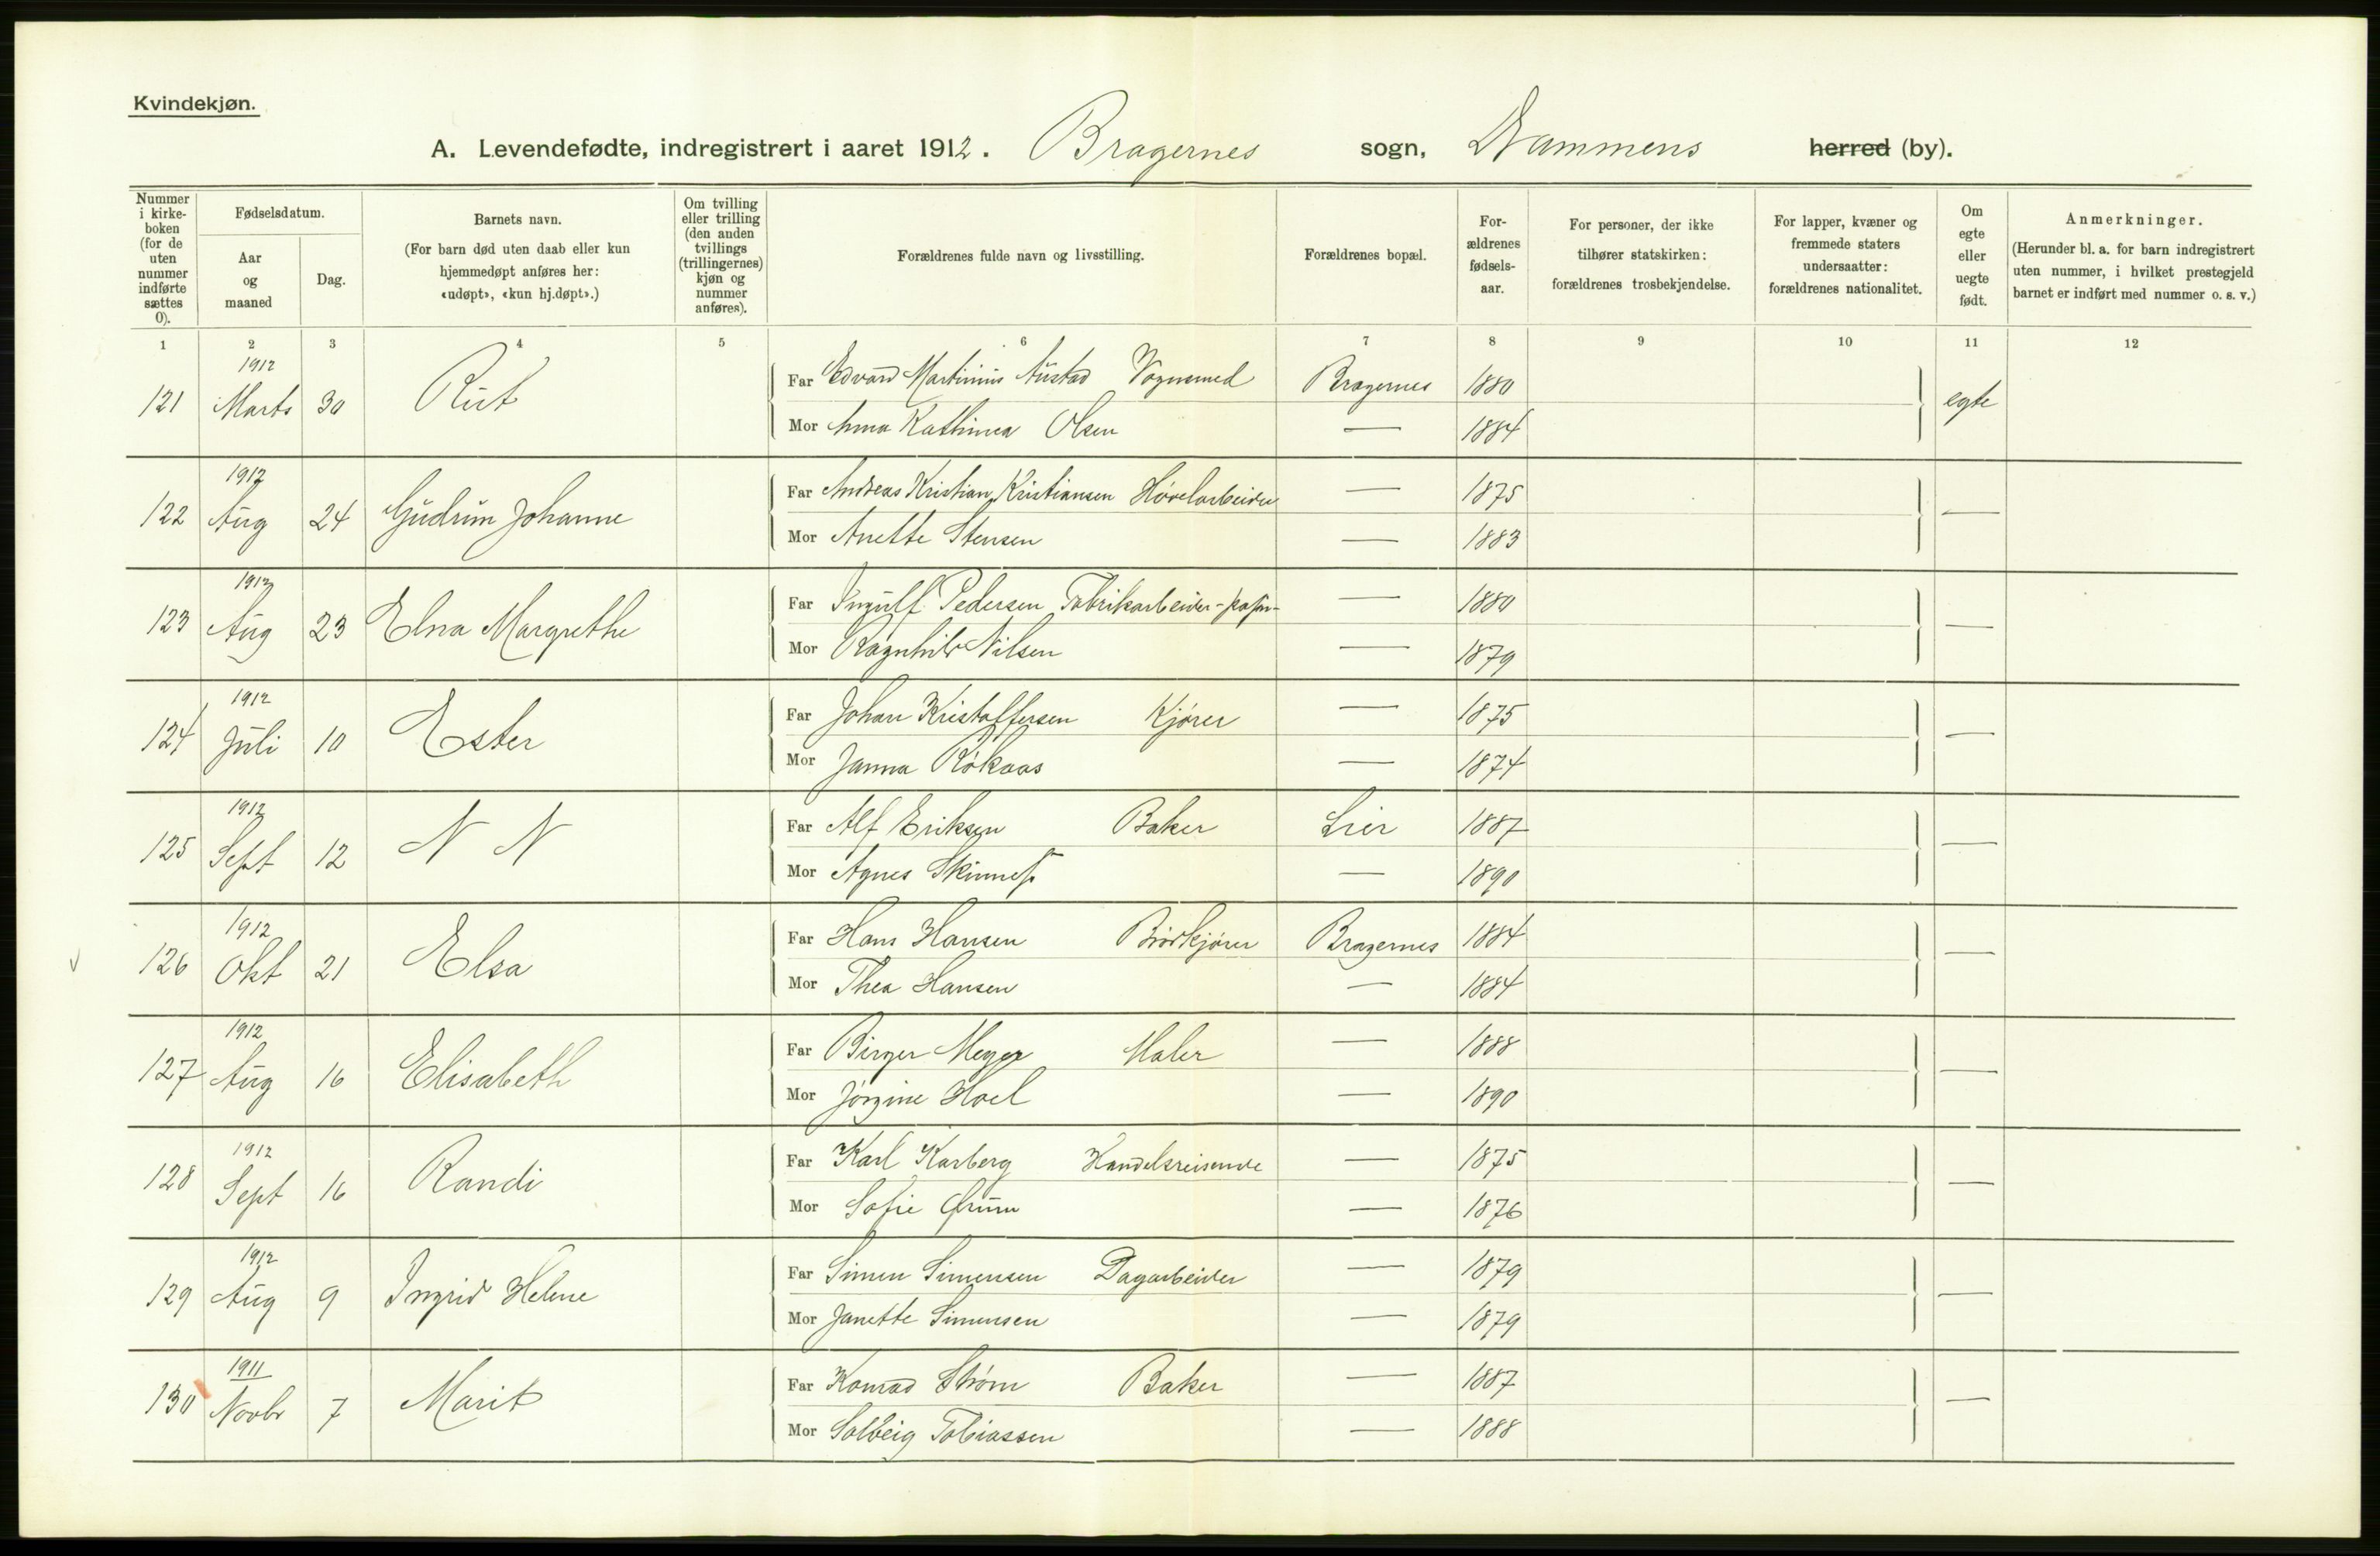 Kvindekjøn.
A. Levendefødte, indregistrert i aaret 1912. Bragernes sogn, Drammens herred (by).
Nummer i kirke- boken (for de uten nummer indførte sættes 0).
Fødselsdatum.
Aar og maaned
Dag.
Barnets navn.
(For barn død uten daab eller kun hjemmedøpt anføres her: «udøpt», «kun hj.døpt».)
Om tvilling eller trilling (den anden tvillings (trillingernes) kjøn og nummer anføres).
Forældrenes fulde navn og livsstilling.
Forældrenes bopæl.
For- ældrenes fødsels- aar.
For personer, der ikke tilhører statskirken: forældrenes trosbekjendelse.
For lapper, kvæner og fremmede staters undersaatter: forældrenes nationalitet.
Om egte eller uegte født.
Anmerkninger.
(Herunder bl. a. for barn indregistrert uten nummer, i hvilket prestegjeld barnet er indført med nummer o. s. v.)
1 2 3 4 5 6 7 8 9 10 11 12
121 1912 Marts 30 Rut
Far Edvard Martinius Austad Vognsmed Bragernes 1880 egte
Mor Anna Kathinca Olsen — 1884
122 1912 Aug 24 Gudrun Johanne
Far Andreas Kristian Kristiansen Høvelarbeider — 1875 —
Mor Anette Stensen — 1883
123 1912 Aug 23 Elna Margrethe
Far Ingulf Pedersen Fabrikarbeider — 1880 —
Mor Ragnhild Nilsen — 1879
124 1912 Juli 10 Ester
Far Johan Kristoffersen Kjører — 1875 —
Mor Janna Røkaas — 1874
125 1912 Sept 12 N N
Far Alf Eriksen Baker Lier 1887 —
Mor Agnes — 1890
126 1912 Okt 21 Elsa
Far Hans Hansen Brødkjører Bragernes 1884 —
Mor Thea Hansen — 1884
127 1912 Aug 16 Elisabeth
Far Birger Meyer Maler — 1888 —
Mor Jørgine Hoel — 1890
128 1912 Sept 16 Randi
Far Karl Karberg Handelsreisende — 1875 —
Mor Sofie — 1876
129 1912 Aug 9 Ingrid Helene
Far Simen Simensen Dagarbeider — 1879 —
Mor Janette Simensen — 1879
130 1911 Novbr 7 Marit
Far Konrad Strøm Baker — 1887 —
Mor Solveig Tobiassen — 1888